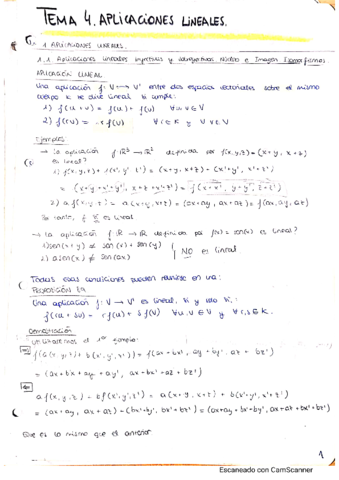 TEMA 4. APLICACIONES LINEALES.
1 APLICACIONES LINEALES.
1.1 Aplicaciones lineales inyectivas y sobreyectivas. Núcleo e Imagen. Isomorfismos.
APLICACIÓN LINEAL
Una aplicación f: V → V' entre dos espacios vectoriales sobre el mismo
cuerpo K se dice lineal si cumple:
1) f(u + v) = f(u) + f(v) ∀ u, v ∈ V
Ejemplos:
→ La aplicación f: R³ → R² definida por f(x,y,z) = (x+y, x+z)
es lineal?
1) f(x,y,z) + f(x',y',z') = (x+y, x+z) + (x'+y', x'+z') =
2) a f(x,y,z) = a(x+y, x+z) = (ax+ay, ax+az) = f(ax, ay, az)
Por tanto, f es lineal
→ La aplicación f: R → R definida por f(x) = sen(x) es lineal?
1) sen(x+y) ≠ sen(x) + sen(y)
2) a sen(x) ≠ sen(ax)
NO es lineal
Todas esas condiciones pueden reunirse en una:
PROPOSICIÓN
Una aplicación f: V → V' es lineal si y sólo si:
Demostración
Utilizaremos el 1er ejemplo:
= (ax + bx' + ay + by', ax + bx' + az + bz')
= (ax+ay, ax+az) + (bx'+by', bx'+bz') = (ax+ay+bx'+by', ax+az+bx'+bz')
Que es lo mismo que el anterior
1
Escaneado con CamScanner